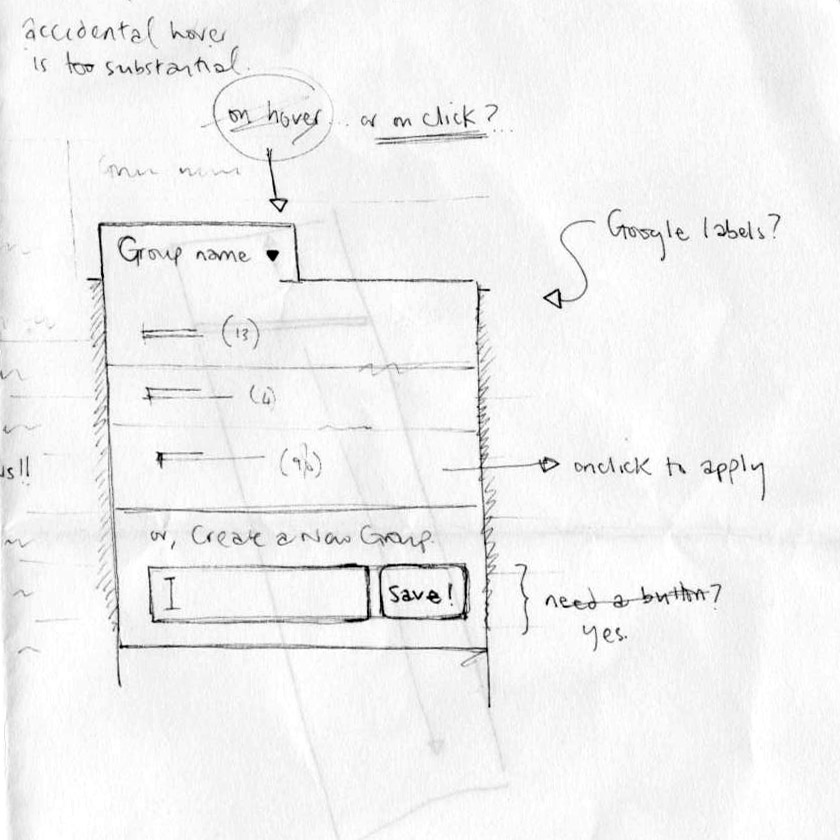 accidental hover
is too substantial.
on hover... or on click?...
Google labels?
Group name
(13)
(4)
onclick to apply
or, Create a New Group.
Save!
need a button?
yes.